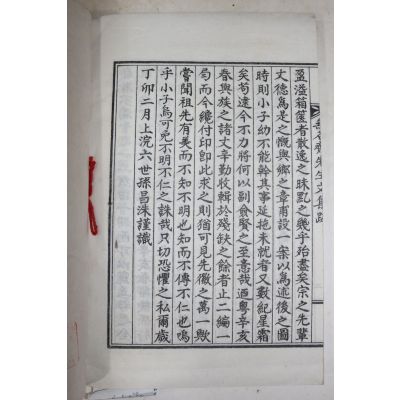 盈溢箱篋者散逸之昧點之幾乎殆盡矣宗之先輩
丈德爲是之慨與鄉之章甫設一案以爲述後之圖
時則小子幼不能幹其事延拖未就者又數紀星霜
矣苟達今不力將何以副僉賢之至意哉迺粤辛亥
春與族之諸丈辛勤收輯於殘缺之餘者止二編一
局而今纔付印卽此求之則猶可見先徽之萬一歟
嘗聞祖先有美而不知不明也知而不傳不仁也嗚
乎小子烏可免不明不仁之誅哉只切恐懼之私爾歲
丁卯二月上浣六世孫昌洙謹識
先生文集跋